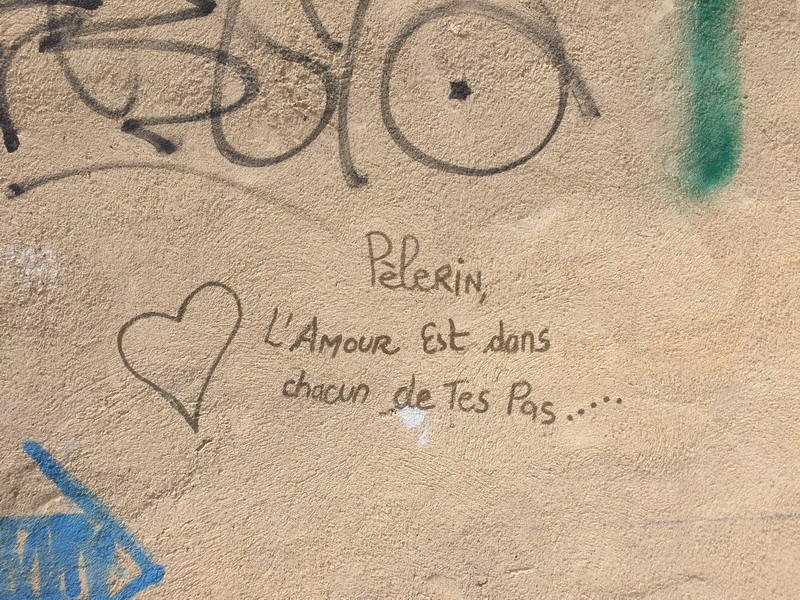 Pèlerin,
L'Amour Est dans
chacun de Tes Pas.....